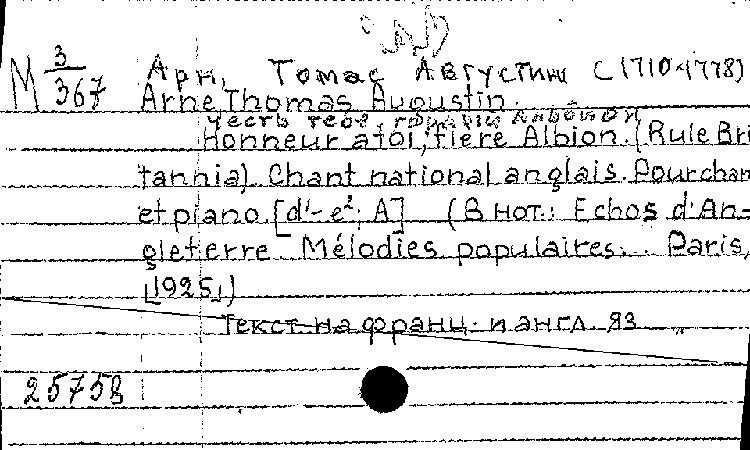 М 3/367 Арн, Томас Августин (1710-1778)
Arne Thomas Augustin.
Честь тебе, гордый Альбион
Honneur à toi, fière Albion. (Rule Bri
tannia). Chant national anglais. Pour chan
et piano. [d¹-e²; A] (В нот.: Echos d'An-
gleterre Mélodies populaires. Paris,
[1925])
Текст на франц. и англ. яз
25758